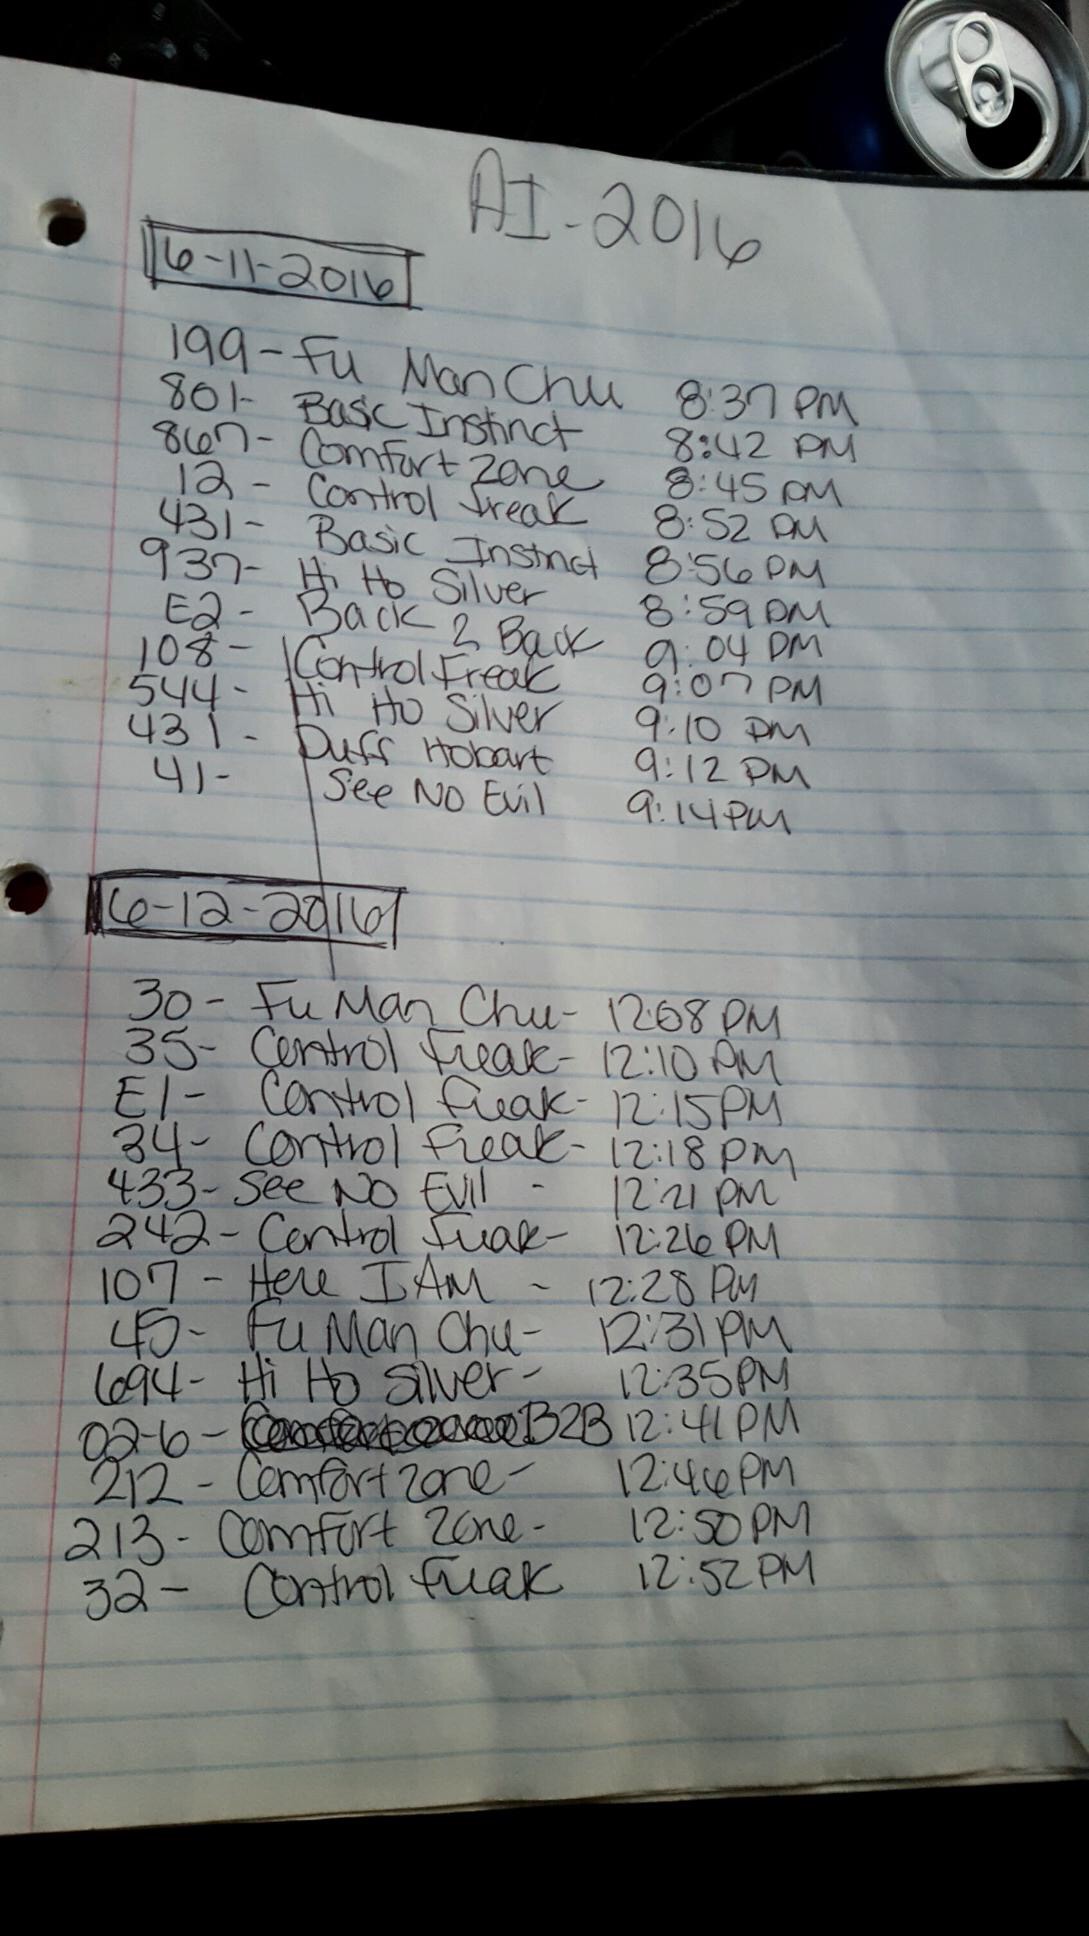 AI-2016
6-11-2016
199- Fu Man Chu 8:37 PM
801- Basic Instinct 8:42 PM
867- Comfort Zone 8:45 PM
12- Control freak 8:52 PM
431- Basic Instinct 8:56 PM
937- Hi Ho Silver 8:59 PM
E2- Back 2 Back 9:04 PM
108- Control Freak 9:07 PM
544- Hi Ho Silver 9:10 PM
431- Duff Hobart 9:12 PM
41- See No Evil 9:14 PM
6-12-2016
30- Fu Man Chu- 12:08 PM
35- Control freak- 12:10 PM
E1- Control freak- 12:15 PM
34- Control freak- 12:18 PM
433- See No Evil - 12:21 PM
242- Control freak- 12:26 PM
107- Here I AM - 12:28 PM
45- Fu Man Chu- 12:31 PM
694- Hi Ho Silver- 12:35 PM
02-6- B2B 12:41 PM
212- Comfort zone- 12:46 PM
213- Comfort Zone- 12:50 PM
32- Control freak 12:52 PM